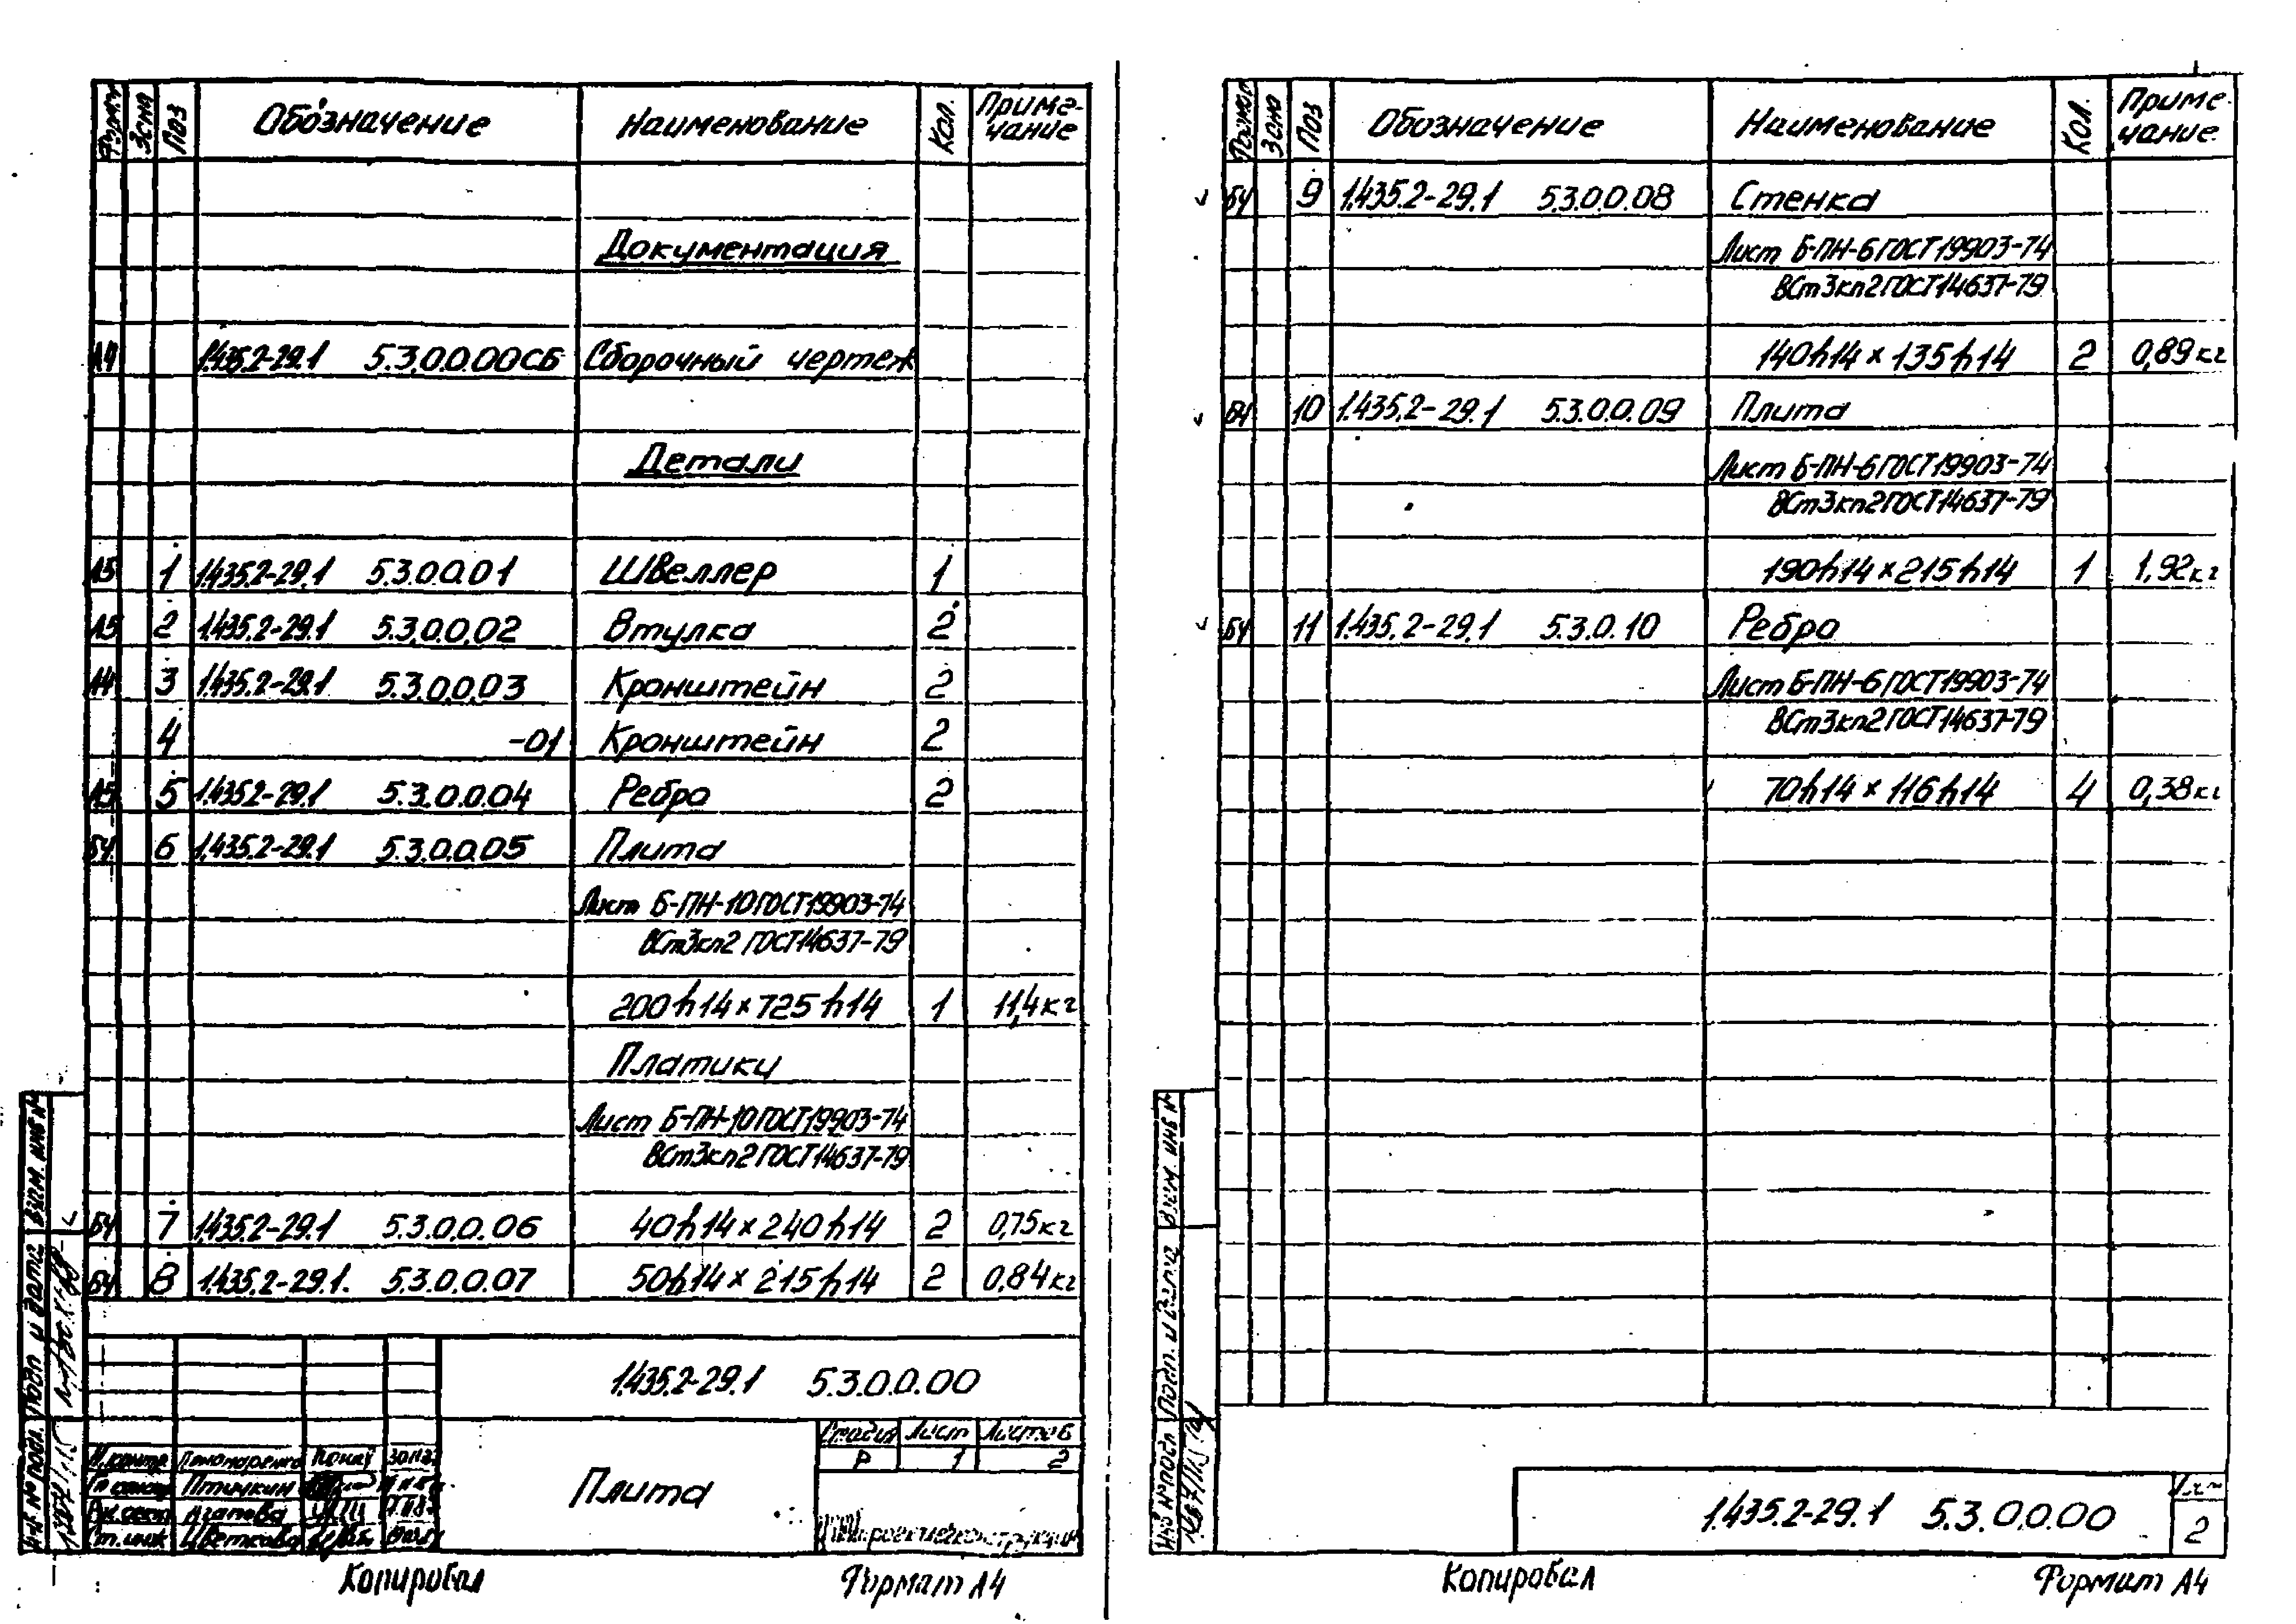 Формат Зона Поз Обозначение Наименование Кол. Приме-чание
Документация
А4 1.435.2-29.1 5.3.0.0.00СБ Сборочный чертеж
Детали
А5 1 1.435.2-29.1 5.3.0.0.01 Швеллер 1
А5 2 1.435.2-29.1 5.3.0.0.02 Втулка 2
А4 3 1.435.2-29.1 5.3.0.0.03 Кронштейн 2
4 -01 Кронштейн 2
А5 5 1.435.2-29.1 5.3.0.0.04 Ребро 2
БЧ 6 1.435.2-29.1 5.3.0.0.05 Плита
Лист Б-ПН-10 ГОСТ 19903-74
ВСт3кп2 ГОСТ 14637-79
200h14×725h14 1 11,4кг
Платики
Лист Б-ПН-10 ГОСТ 19903-74
ВСт3кп2 ГОСТ 14637-79
БЧ 7 1.435.2-29.1 5.3.0.0.06 40h14×240h14 2 0,75кг
БЧ 8 1.435.2-29.1. 5.3.0.0.07 50h14×215h14 2 0,84кг
1.435.2-29.1 5.3.0.0.00
Стадия Лист Листов
Р 1 2
Плита
Н.контр Пономаренко
Птичкин
Агапова
Ст.инж Цветкова
Инв № подл. Подп и дата Взам. инв №
Копировал Формат А4
Формат Зона Поз Обозначение Наименование Кол. Приме-чание.
БЧ 9 1.435.2-29.1 5.3.0.0.08 Стенка
Лист Б-ПН-6 ГОСТ 19903-74
ВСт3кп2 ГОСТ 14637-79
140h14×135h14 2 0,89кг
БЧ 10 1.435.2-29.1 5.3.0.0.09 Плита
Лист Б-ПН-6 ГОСТ 19903-74
ВСт3кп2 ГОСТ 14637-79
190h14×215h14 1 1,92кг
БЧ 11 1.435.2-29.1 5.3.0.10 Ребро
Лист Б-ПН-6 ГОСТ 19903-74
ВСт3кп2 ГОСТ 14637-79
70h14×116h14 4 0,38кг
Инв № подл Подп. и дата Взам. инв №
1.435.2-29.1 5.3.0.0.00
Лист
2
Копировал Формат А4